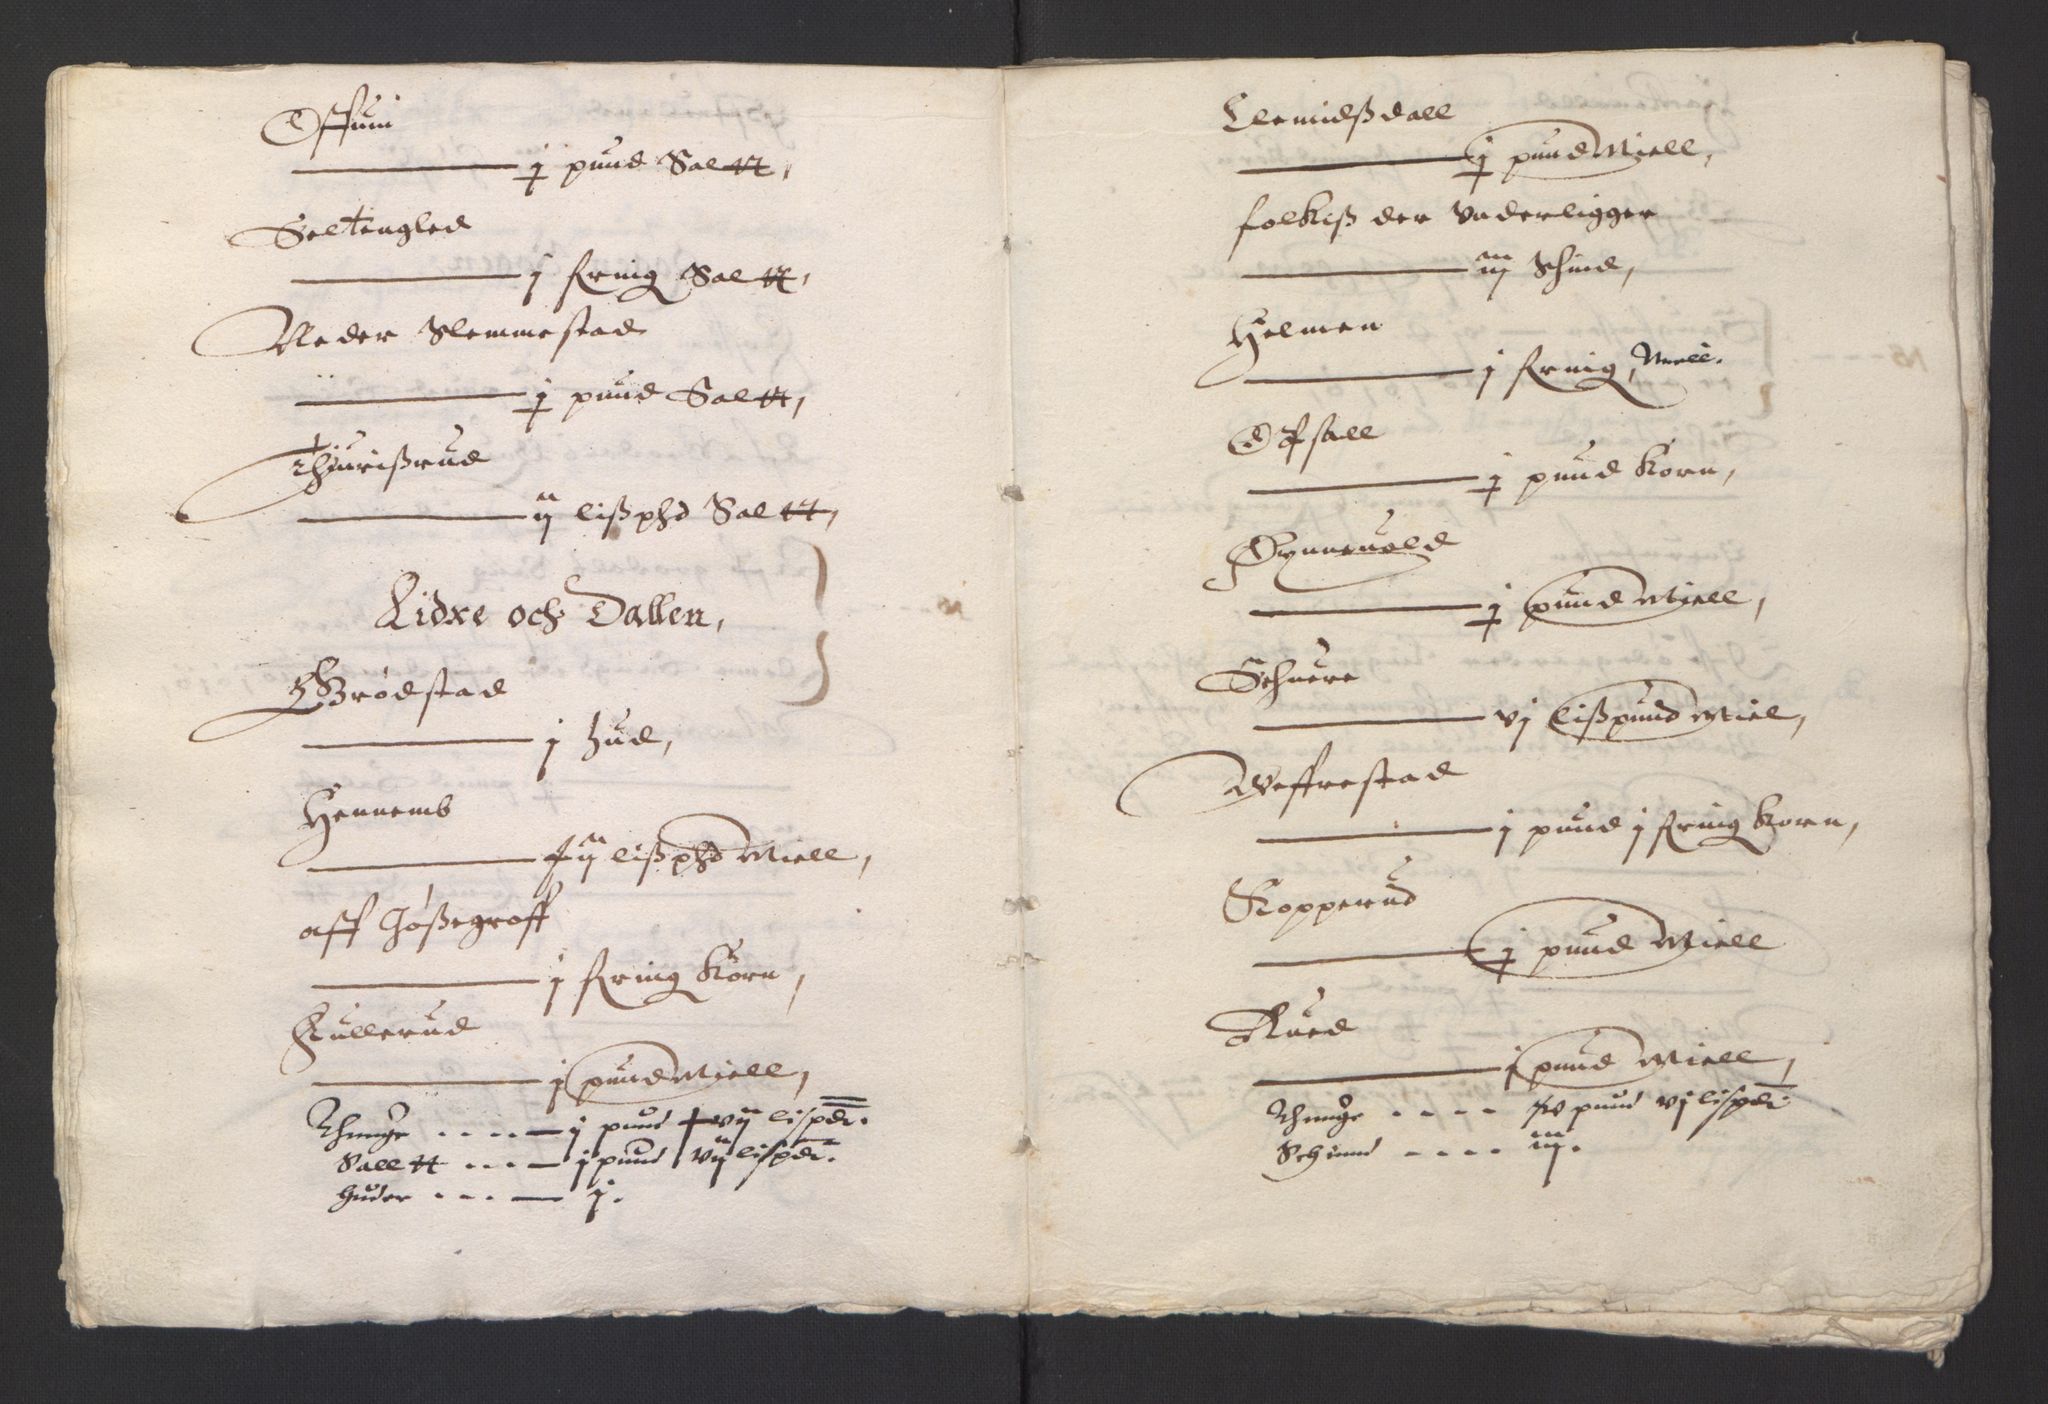 Offuin
j pund Saltt,
Seltengled
j Fring Saltt,
Neder Slemmestad
j pund Saltt,
Thiurißrud
ij lißphd Saltt,
Lidxe och Dallen,
Grødstad
j hud,
Hennemb
ij lißphd Miell,
aff Joßegroff
j Fring Korn,
Kullerud
j pund Miell,
Thunge - - - - j pund vij lispdt.
Salltt - - - j pund vij lispdt.
huder - - - j.
Clemidßdall
j pund Miell,
folkiß der Underligger
iij Schind,
Holmen
j Fring Meell.
Opsall
j pund Korn,
Gynneuold
j pund Miell,
Schuere
vj lißpund Miel,
Weffrestad
j pund j Fring Korn,
Kopperud
j pund Miell
Rued
j pund Miell,
Thunge - - - - iv pund vj lispdt
Schinnd - - - - iij.